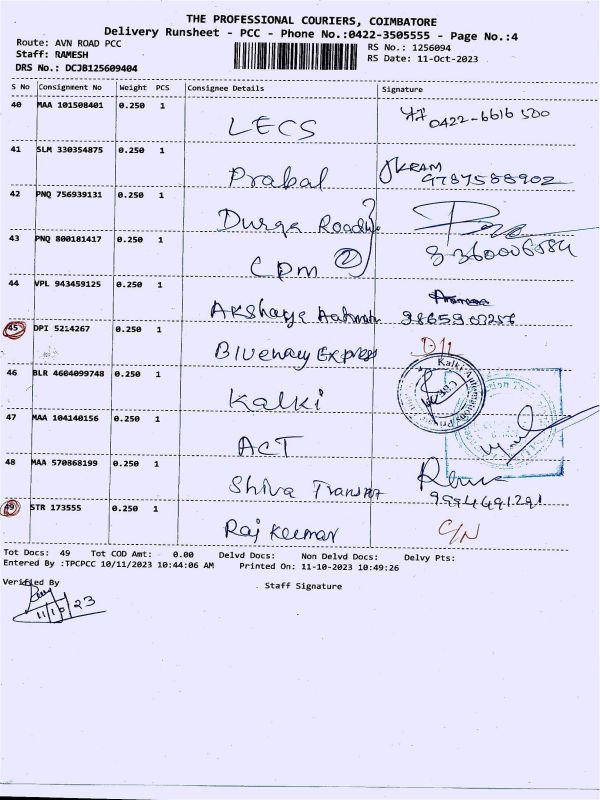 THE PROFESSIONAL COURIERS, COIMBATORE
Delivery Runsheet - PCC - Phone No.:0422-3505555 - Page No.:4
Route: AVN ROAD PCC RS No.: 1256094
Staff: RAMESH RS Date: 11-Oct-2023
DRS No.: DCJB125609404
S No Consignment No Weight PCS Consignee Details Signature
40 MAA 101508401 0.250 1 LECS 0422-6616 500
41 SLM 330354875 0.250 1 Prabal 9787588902
42 PNQ 756939131 0.250 1 Durga
43 PNQ 800181417 0.250 1 CPM 2
44 VPL 943459125 0.250 1 Akshaya
45 DPI 5214267 0.250 1 Blueway Express
46 BLR 4604099748 0.250 1 Kalki
47 MAA 104140156 0.250 1 ACT
48 MAA 570868199 0.250 1 Shiva Transport 9994691291
49 STR 173555 0.250 1 Raj Kumar C/N
Tot Docs: 49 Tot COD Amt: 0.00 Delvd Docs: Non Delvd Docs: Delvy Pts:
Entered By :TPCPCC 10/11/2023 10:44:06 AM Printed On: 11-10-2023 10:49:26
Verified By Staff Signature
11/10/23